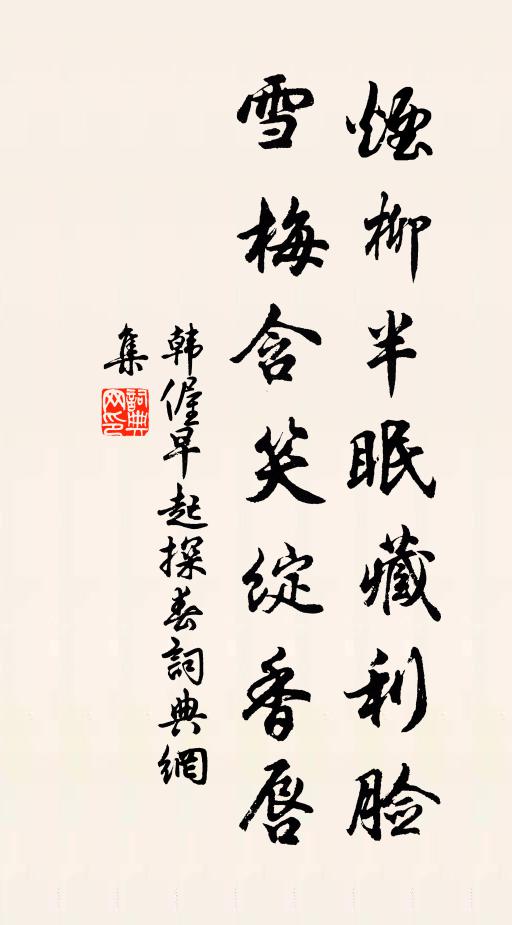 煙柳半眠藏利脸
雪梅含笑綻香唇
韩偓早起探春詞典網
集
詞典网印